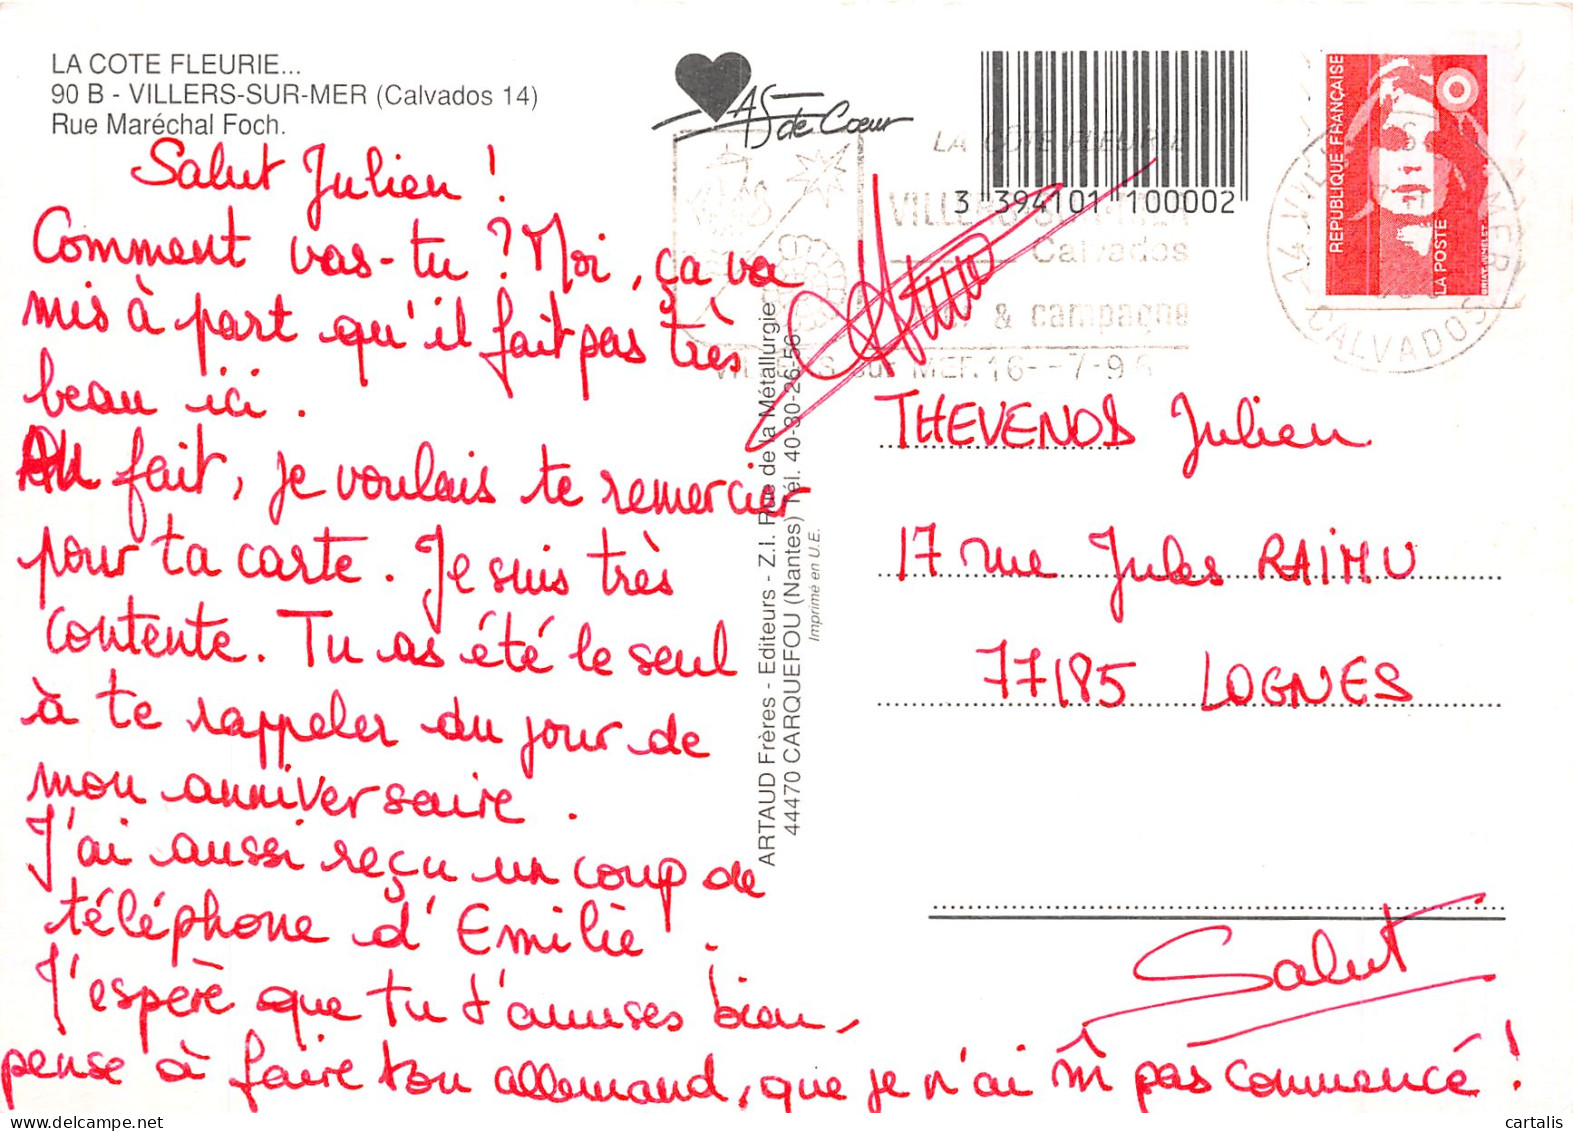 LA COTE FLEURIE...
90 B - VILLERS-SUR-MER (Calvados 14)
Rue Maréchal Foch.
AS de Coeur
3 394101 100002
REPUBLIQUE FRANÇAISE
LA POSTE
LA COTE FLEURIE
Calvados
& campagne
CALVADOS
Salut Julien !
Comment vas-tu ? Moi, ça va
mis à part qu'il fait pas très
beau ici.
Au fait, je voulais te remercier
pour ta carte. Je suis très
contente. Tu as été le seul
à te rappeler du jour de
mon anniversaire.
J'ai aussi reçu un coup de
téléphone d'Emilie.
J'espère que tu t'amuses bien,
pense à faire ton allemand, que je n'ai pas commencé !
Salut
THEVENOD Julien
17 rue Jules RAIMU
77185 LOGNES
ARTAUD Frères - Editeurs - Z.I. Rue de la Métallurgie
44470 CARQUEFOU (Nantes) Tél. 40-30-26-56
Imprimé en U.E.
cartalis
delcampe.net